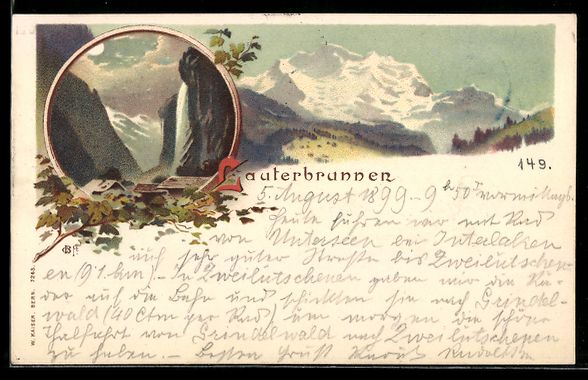 149.
Lauterbrunnen
5. August 1899 - 9 h 50 vormittags.
Heute fuhren wir mit Rad
von Unterseen bei Interlaken
auf sehr guter Straße bis Zweilutschen-
en (9.1 km) - In Zweilutschenen gaben wir die Rä-
der auf die Bahn und schickten sie nach Grindel-
wald (40 Ctm per Rad) um morgen die schöne
Thalfahrt von Grindelwald nach Zweilutschenen
zu haben. - Besten Gruß
W. KAISER. BERN. 7265.